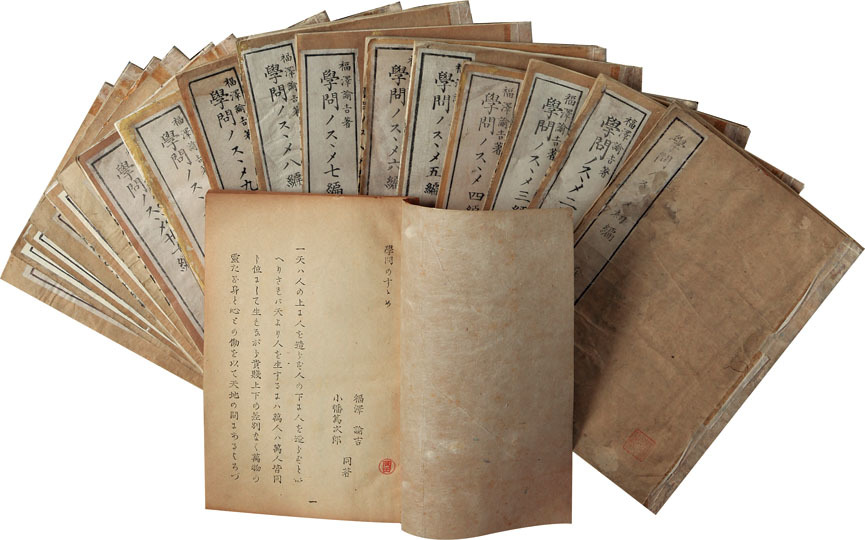 學問ノスヽメ初編
福澤諭吉著
學問ノスヽメ二
福澤諭吉著
學問ノスヽメ三編
福澤諭吉著
學問ノスヽメ四編
福澤諭吉著
學問ノスヽメ五編
福澤諭吉著
學問ノスヽメ六編
福澤諭吉著
學問ノスヽメ七編
福澤諭吉著
學問ノスヽメ八編
福澤諭吉著
學問ノスヽメ九
福澤諭吉著
學問ノスヽメ
福澤諭吉著
學問ノスヽメ
學問のすゝめ
福澤 諭吉
小幡篤次郎 同著
一天ハ人の上に人を造らず人の下に人を造らずと云
へりされば天より人を生ずるにハ萬人ハ萬人皆同
じ位にして生れながら貴賤上下の差別なく萬物の
靈たる身と心との働を以て天地の間にあるよろづ
一